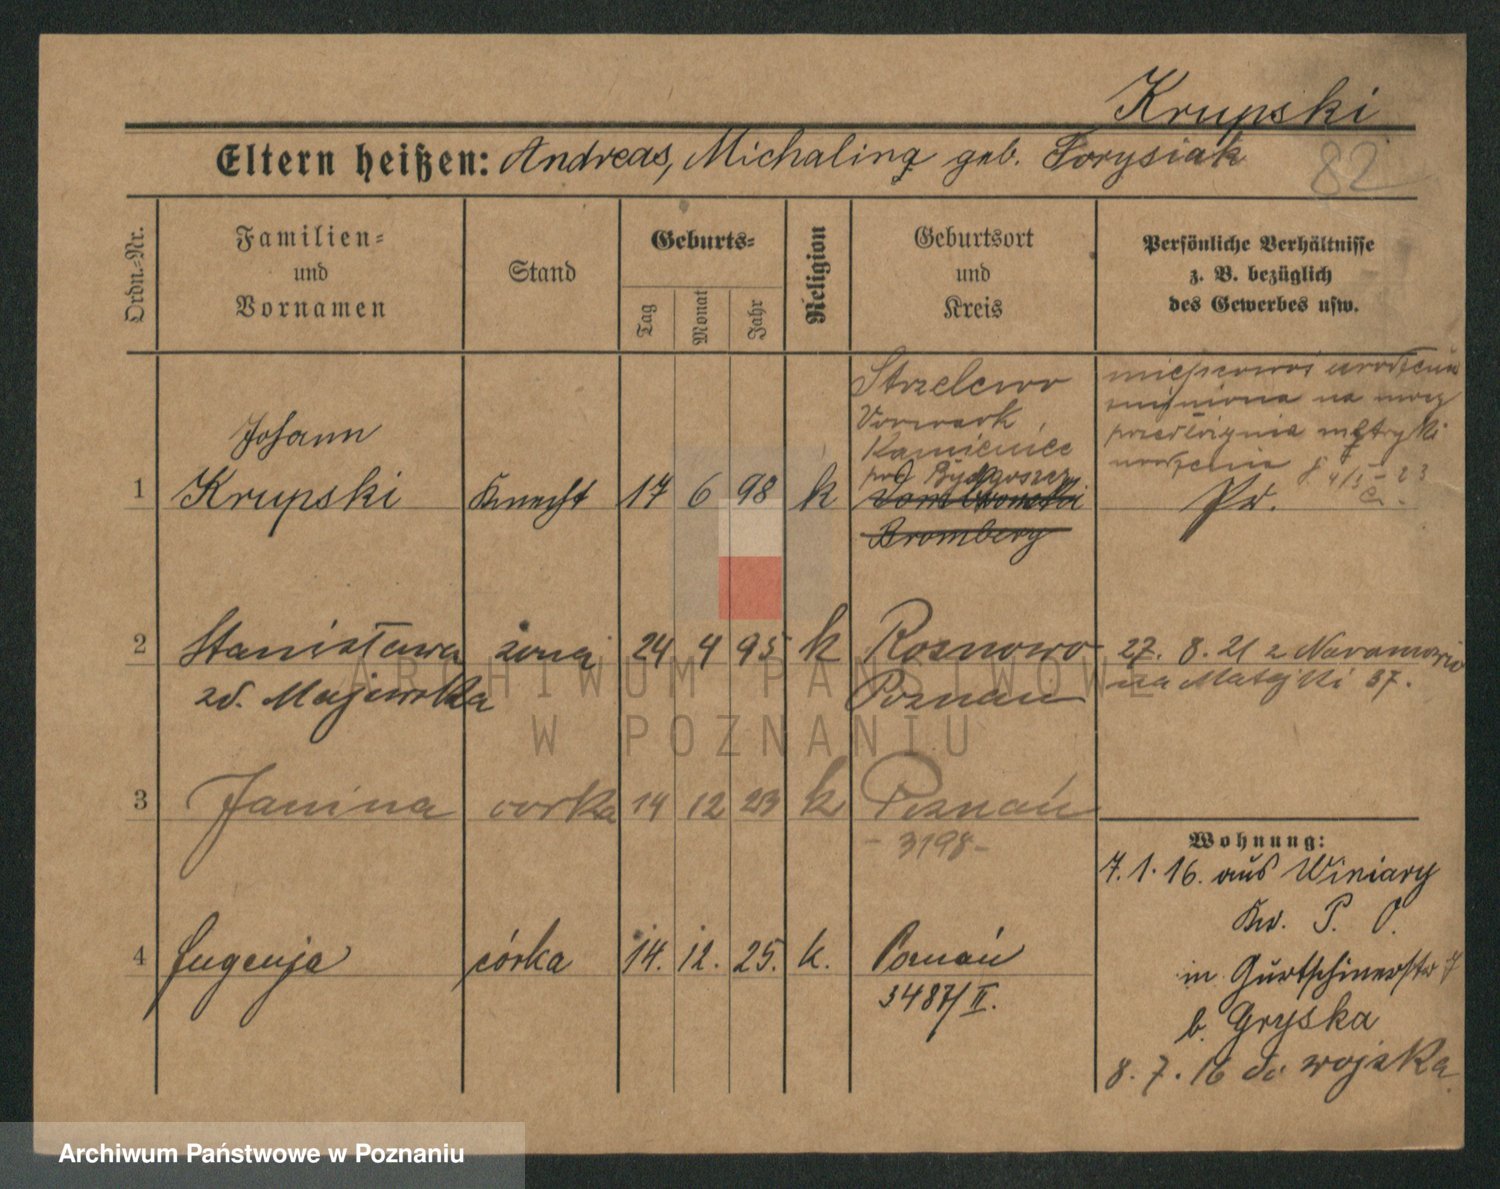 Krupski
Eltern heißen: Andreas, Michalina geb. Torysiak
82
Ordn.=Nr.
Familien=
und
Vornamen
Stand
Geburts=
Tag
Monat
Jahr
Religion
Geburtsort
und
Kreis
Persönliche Verhältnisse
z. B. bezüglich
des Gewerbes usw.
1
Johann
Krupski
Knecht
17 6 98 k
Strzelewo
Vorwerk
Kamieniec
pod Bydgoszcz
Bromberg
miejscowość urodzenia
zmieniona na mocy
przedłożenia metryki
urodzenia 8 4/5 - 23
2
Stanisława
zd. Majewska
żona
24 4 95 k
Roznowo
Poznań
27. 8. 21 z Naramowic
na Matejki 37.
3
Janina
córka
14 12 23 k
Poznań
- 3198 -
4
Eugenja
córka
14. 12. 25. k.
Poznań
3487/II.
Wohnung:
7. 1. 16. aus Winiary
Kr. P. O.
in Gurtschinerstr 7
b. Gryska
8. 7. 16 do wojska
ARCHIWUM PAŃSTWOWE
W POZNANIU
Archiwum Państwowe w Poznaniu